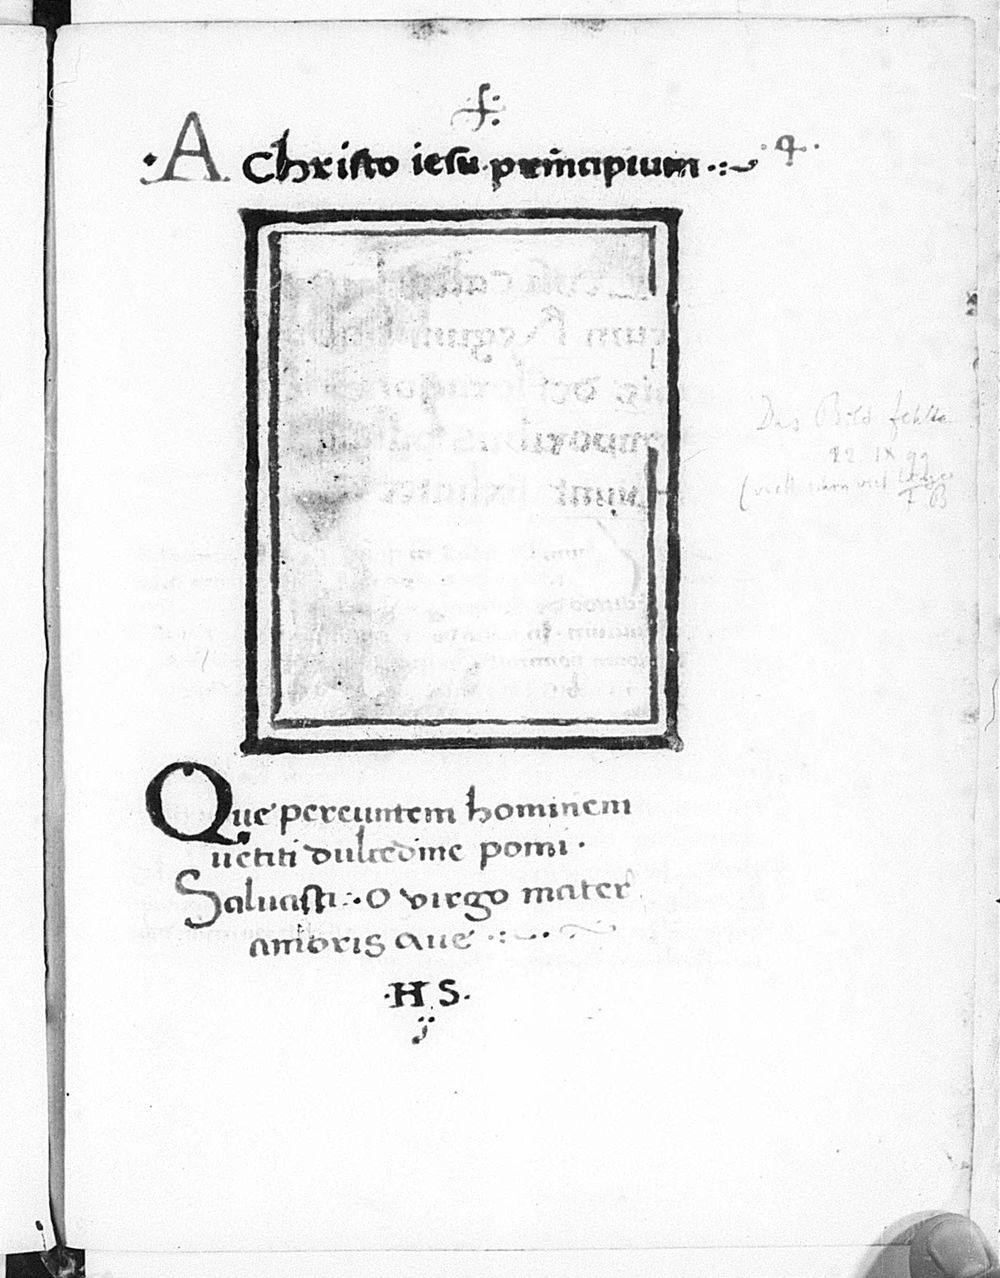 A Christo iesu principium
Das Bild fehlte
22 IX 99
Que pereuntem hominem
uetiti dulcedine pomi ·
Saluasti · O virgo mater
amoris aue
· H S ·